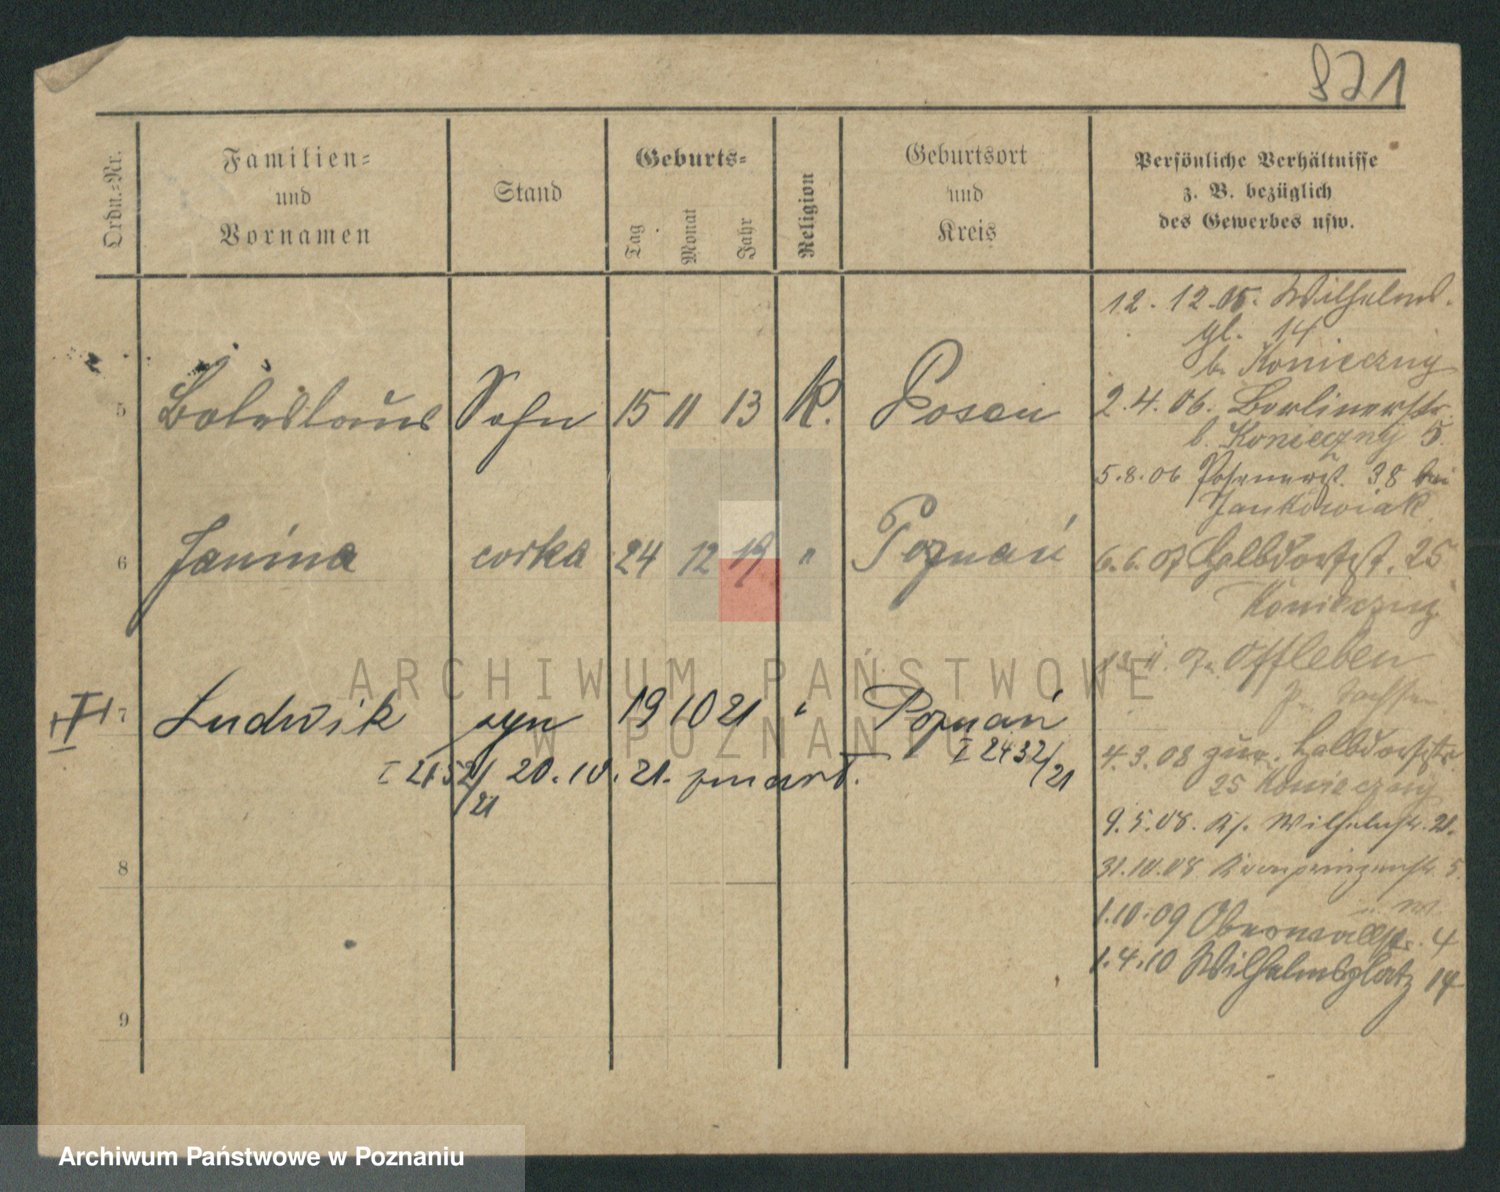 821
Ordn.-Nr.
Familien-
und
Vornamen
Stand
Geburts-
Tag
Monat
Jahr
Religion
Geburtsort
und
Kreis
Persönliche Verhältnisse
z. B. bezüglich
des Gewerbes usw.
12. 12. 05. Wilhelms-
pl. 14
b. Konieczny
5 Boleslaus Sohn 15 11 13 K. Posen
2.4.06. Berlinerstr.
b. Konieczny 5.
5.8.06 Posenerst. 38 bei
Jankowiak
6 Janina corka 24 12 19 " Poznań
6.6.07 Halbdorfst. 25
Konieczny
13. 11. 07. Offleben
Sachsen
II 7 Ludwik syn 19 10 21 " Poznań
I 2432/21
I 2152/21 20.10.21. zmarł.
4.3.08 zur. Halbdorfstr.
25 Konieczny
9.5.08. Wilhelmstr. 21.
8
31.10.08 Kronprinzenstr. 5.
1.10.09 4
1.4.10 Wilhelmsplatz 14
9
ARCHIWUM PAŃSTWOWE
W POZNANIU
Archiwum Państwowe w Poznaniu